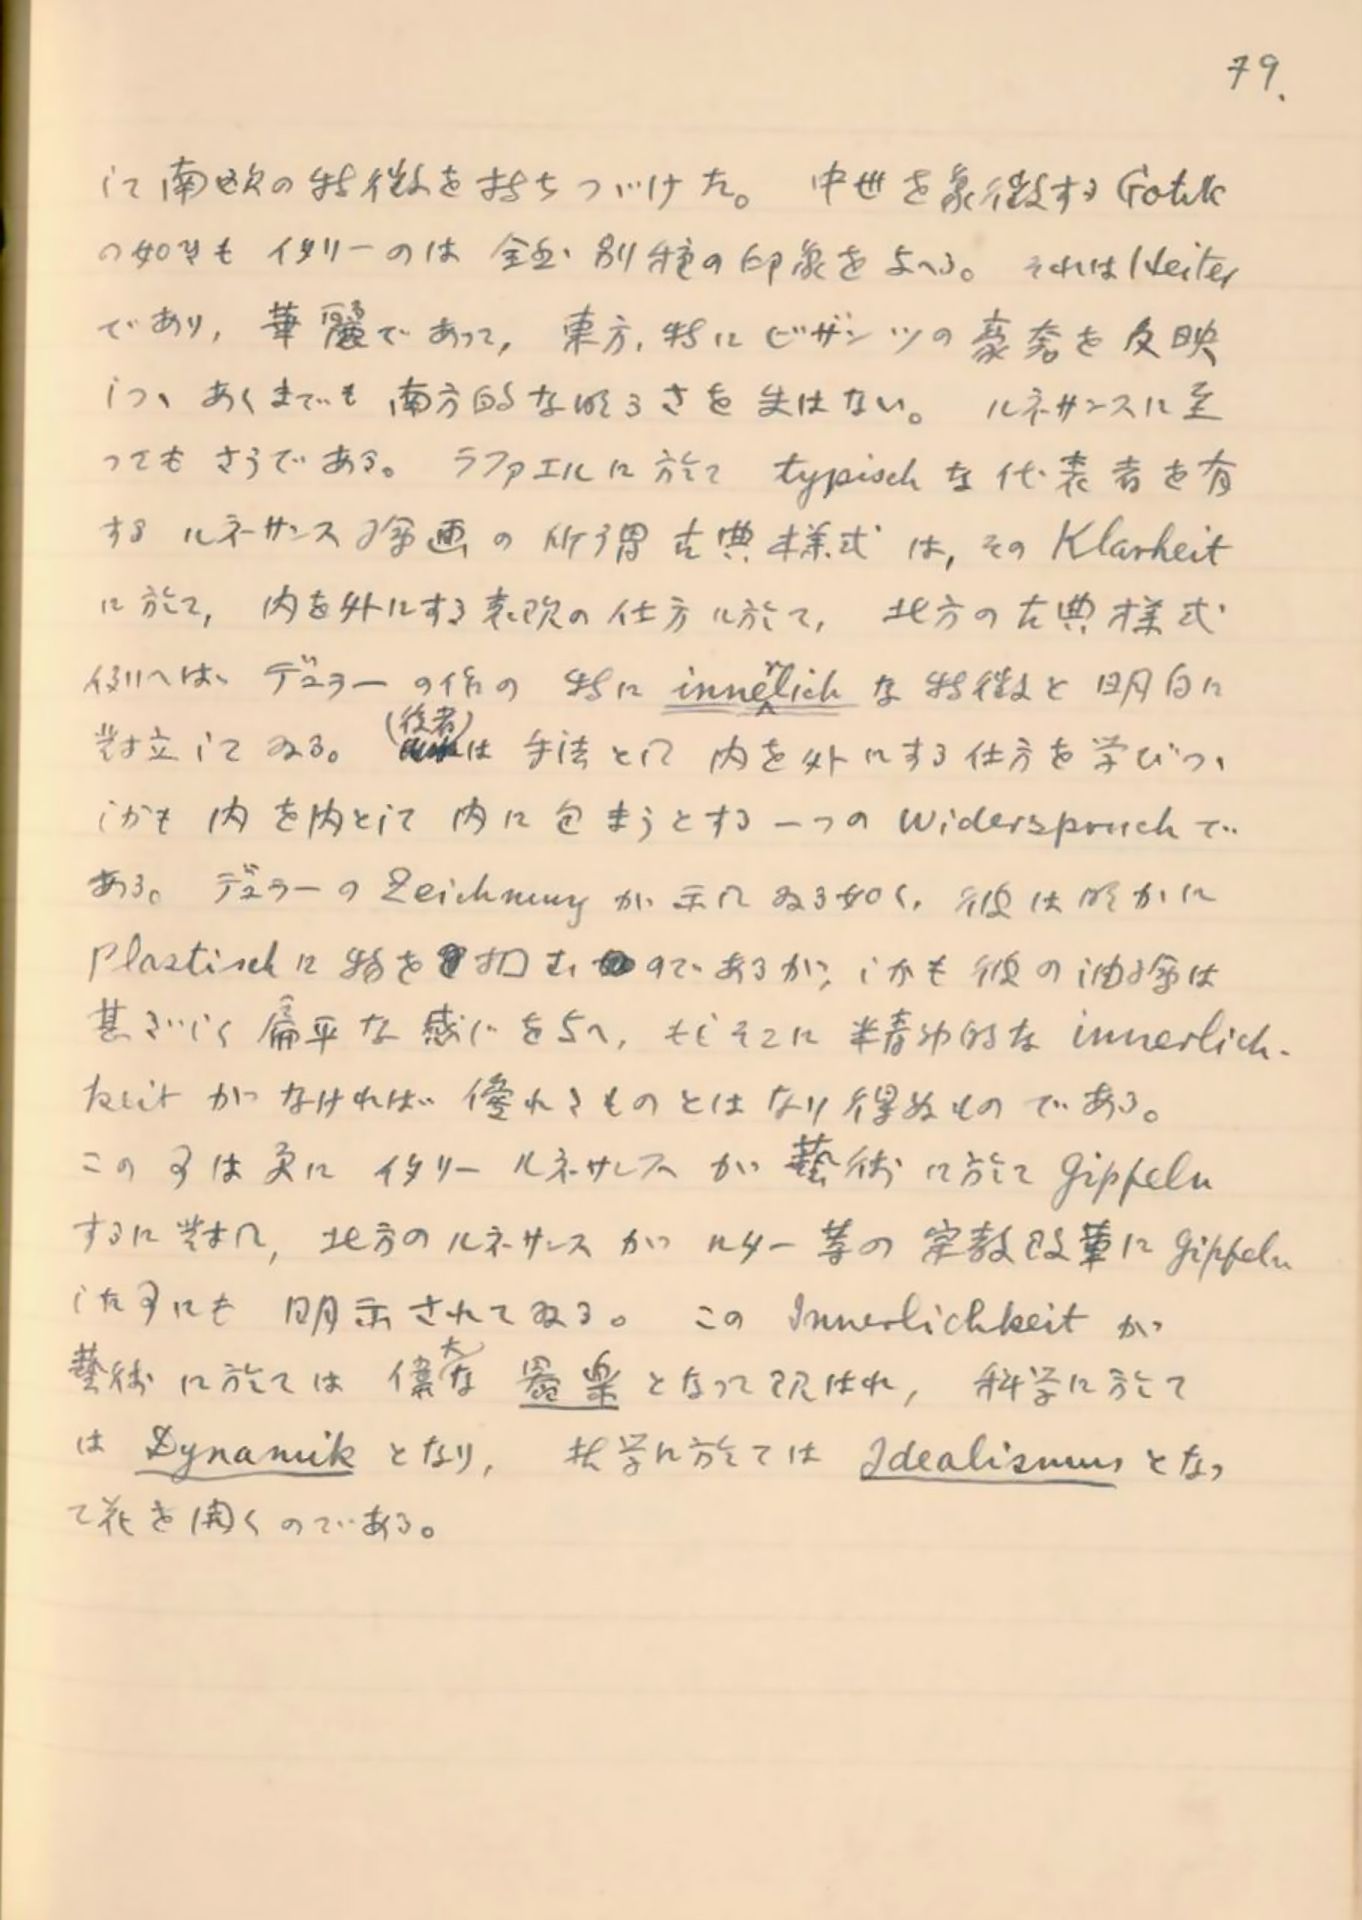 79.
して南欧の特徴を持ちつづけた。 中世を象徴する Gotik
の如きも イタリーのは 全然別種の印象を与へる。 それは Heiter
であり, 華麗であって, 東方, 特にビザンツの豪奢を反映
しつゝ あくまでも 南方的な明るさを失はない。 ルネサンスに至
ってもさうである。 ラファエルに於て typisch な代表者を有
する ルネサンス絵画の所謂古典様式は, その Klarheit
に於て, 内を外にする表現の仕方に於て, 北方の古典様式
例へば、デューラーの作の 特に innerlich な特徴と明白に
対立してゐる。 (後者)は 手法として 内を外にする仕方を学びつゝ
しかも 内を内として 内に包まうとする一つの Widerspruch で
ある。 デューラーの Zeichnung が示してゐる如く, 彼は明かに
Plastisch に物を掴むのであるが, しかも彼の油絵は
甚だしく扁平な感じを与へ, もしそこに精神的な innerlich-
keit がなければ 優れたものとはなり得ぬものである。
この事は更に イタリールネサンスが藝術に於て gipfeln
するに対して, 北方のルネサンスが ルター等の宗教改革に gipfeln
した事にも 明示されてゐる。 この Innerlichkeit が
藝術に於ては 偉大な 器楽となって現はれ, 科学に於て
は Dynamik となり, 哲学に於ては Idealismus となっ
て花を開くのである。